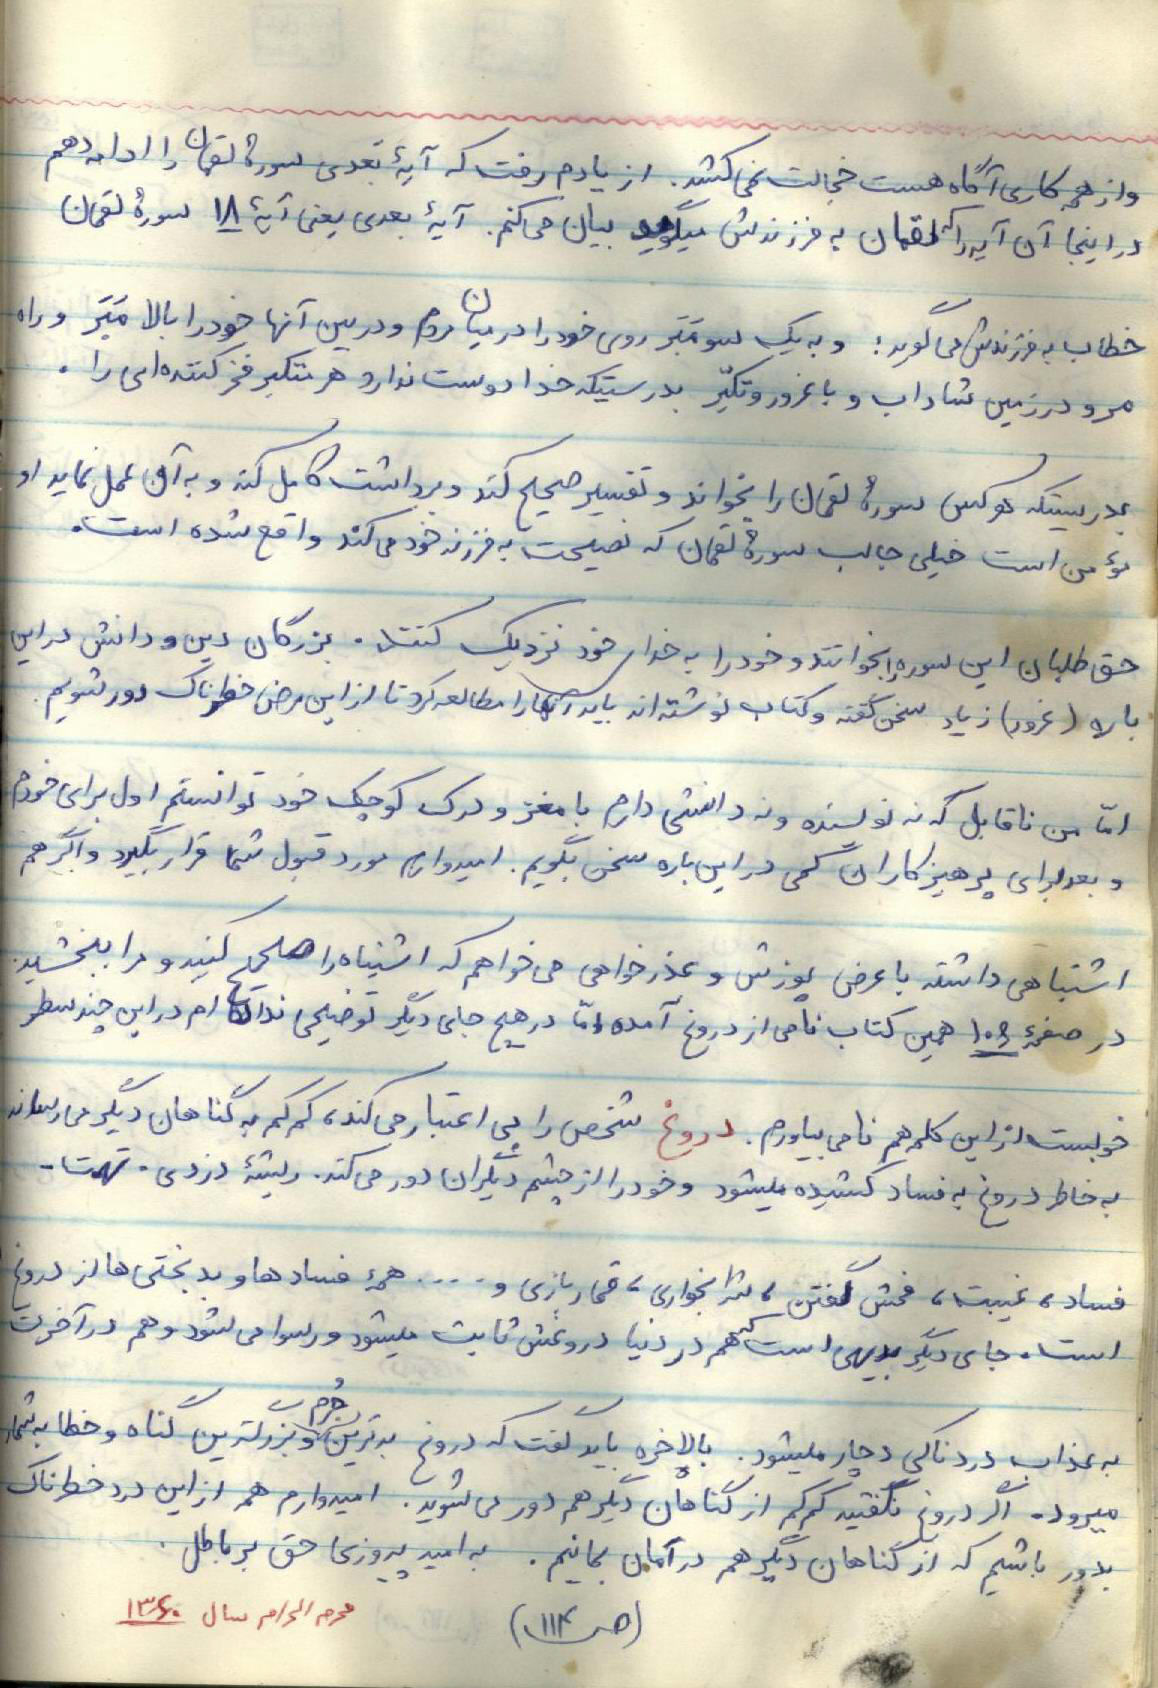 و از همه کاری آگاه هست خجالت نمی کشد. از یادم رفت که آیهٔ بعدی سورهٔ لقمان را ادامه دهم
در اینجا آن آیه را که لقمان به فرزندش میگوید بیان می کنم. آیهٔ بعدی یعنی آیهٔ ۱۸ سورهٔ لقمان
خطاب به فرزندش می گوید: و به یک سو مَبَر روی خود را در میان مردم و در بین آنها خود را بالا مَبَر و راه
مرو در زمین شاداب و با غرور و تکبّر بدرستیکه خدا دوست ندارد هر متکبر فخر کننده ای را.
بدرستیکه هر کس سورهٔ لقمان را بخواند و تفسیر صحیح کند و برداشت کامل کند و به آن عمل نماید او
مؤمن است خیلی جالب سورهٔ لقمان که نصیحت به فرزند خود می کند واقع شده است.
حق طلبان این سوره را بخوانند و خود را به خدای خود نزدیک کنند. بزرگان دین و دانش در این
باره (غرور) زیاد سخن گفته و کتاب نوشته اند باید آنها را مطالعه کرد تا از این مرض خطرناک دور شویم.
امّا من ناقابل که نه نویسنده و نه دانشی دارم با مغز و درک کوچک خود توانستم اول برای خودم
و بعد برای پرهیزکاران کمی در این باره سخن بگویم. امیدوارم مورد قبول شما قرار بگیرد و اگر هم
اشتباهی داشته با عرض پوزش و عذرخواهی می خواهم که اشتباه را صحیح کنید و مرا ببخشید.
در صفحهٔ ۱۰۹ همین کتاب نامی از دروغ آمده امّا در هیچ جای دیگر توضیحی نداده ام در این چند سطر
خوبست از این کلمه هم نامی بیاورم. دروغ شخص را بی اعتبار می کند، کم کم به گناهان دیگر می رساند
به خاطر دروغ به فساد کشیده میشود و خود را از چشم دیگران دور می کند. ریشهٔ دزدی - تهمت -
فساد، غیبت، فحش گفتن، شرابخواری، قماربازی و .... همهٔ فسادها و بدبختی ها از دروغ
است. جای دیگر بدیهی است که هم در دنیا دروغش ثابت میشود و رسوا می شود و هم در آخرت
به عذاب دردناکی دچار میشود. بالاخره باید گفت که دروغ بدترین جُرم و بزرگترین گناه و خطا به شمار
میرود. اگر دروغ نگفتید کم کم از گناهان دیگر هم دور می شوید. امیدوارم هم از این درد خطرناک
بدور باشیم که از گناهان دیگر هم در امان بمانیم. به امید پیروزی حق بر باطل.
(ص ۱۱۴)
محرم الحرام سال ۱۳۶۰